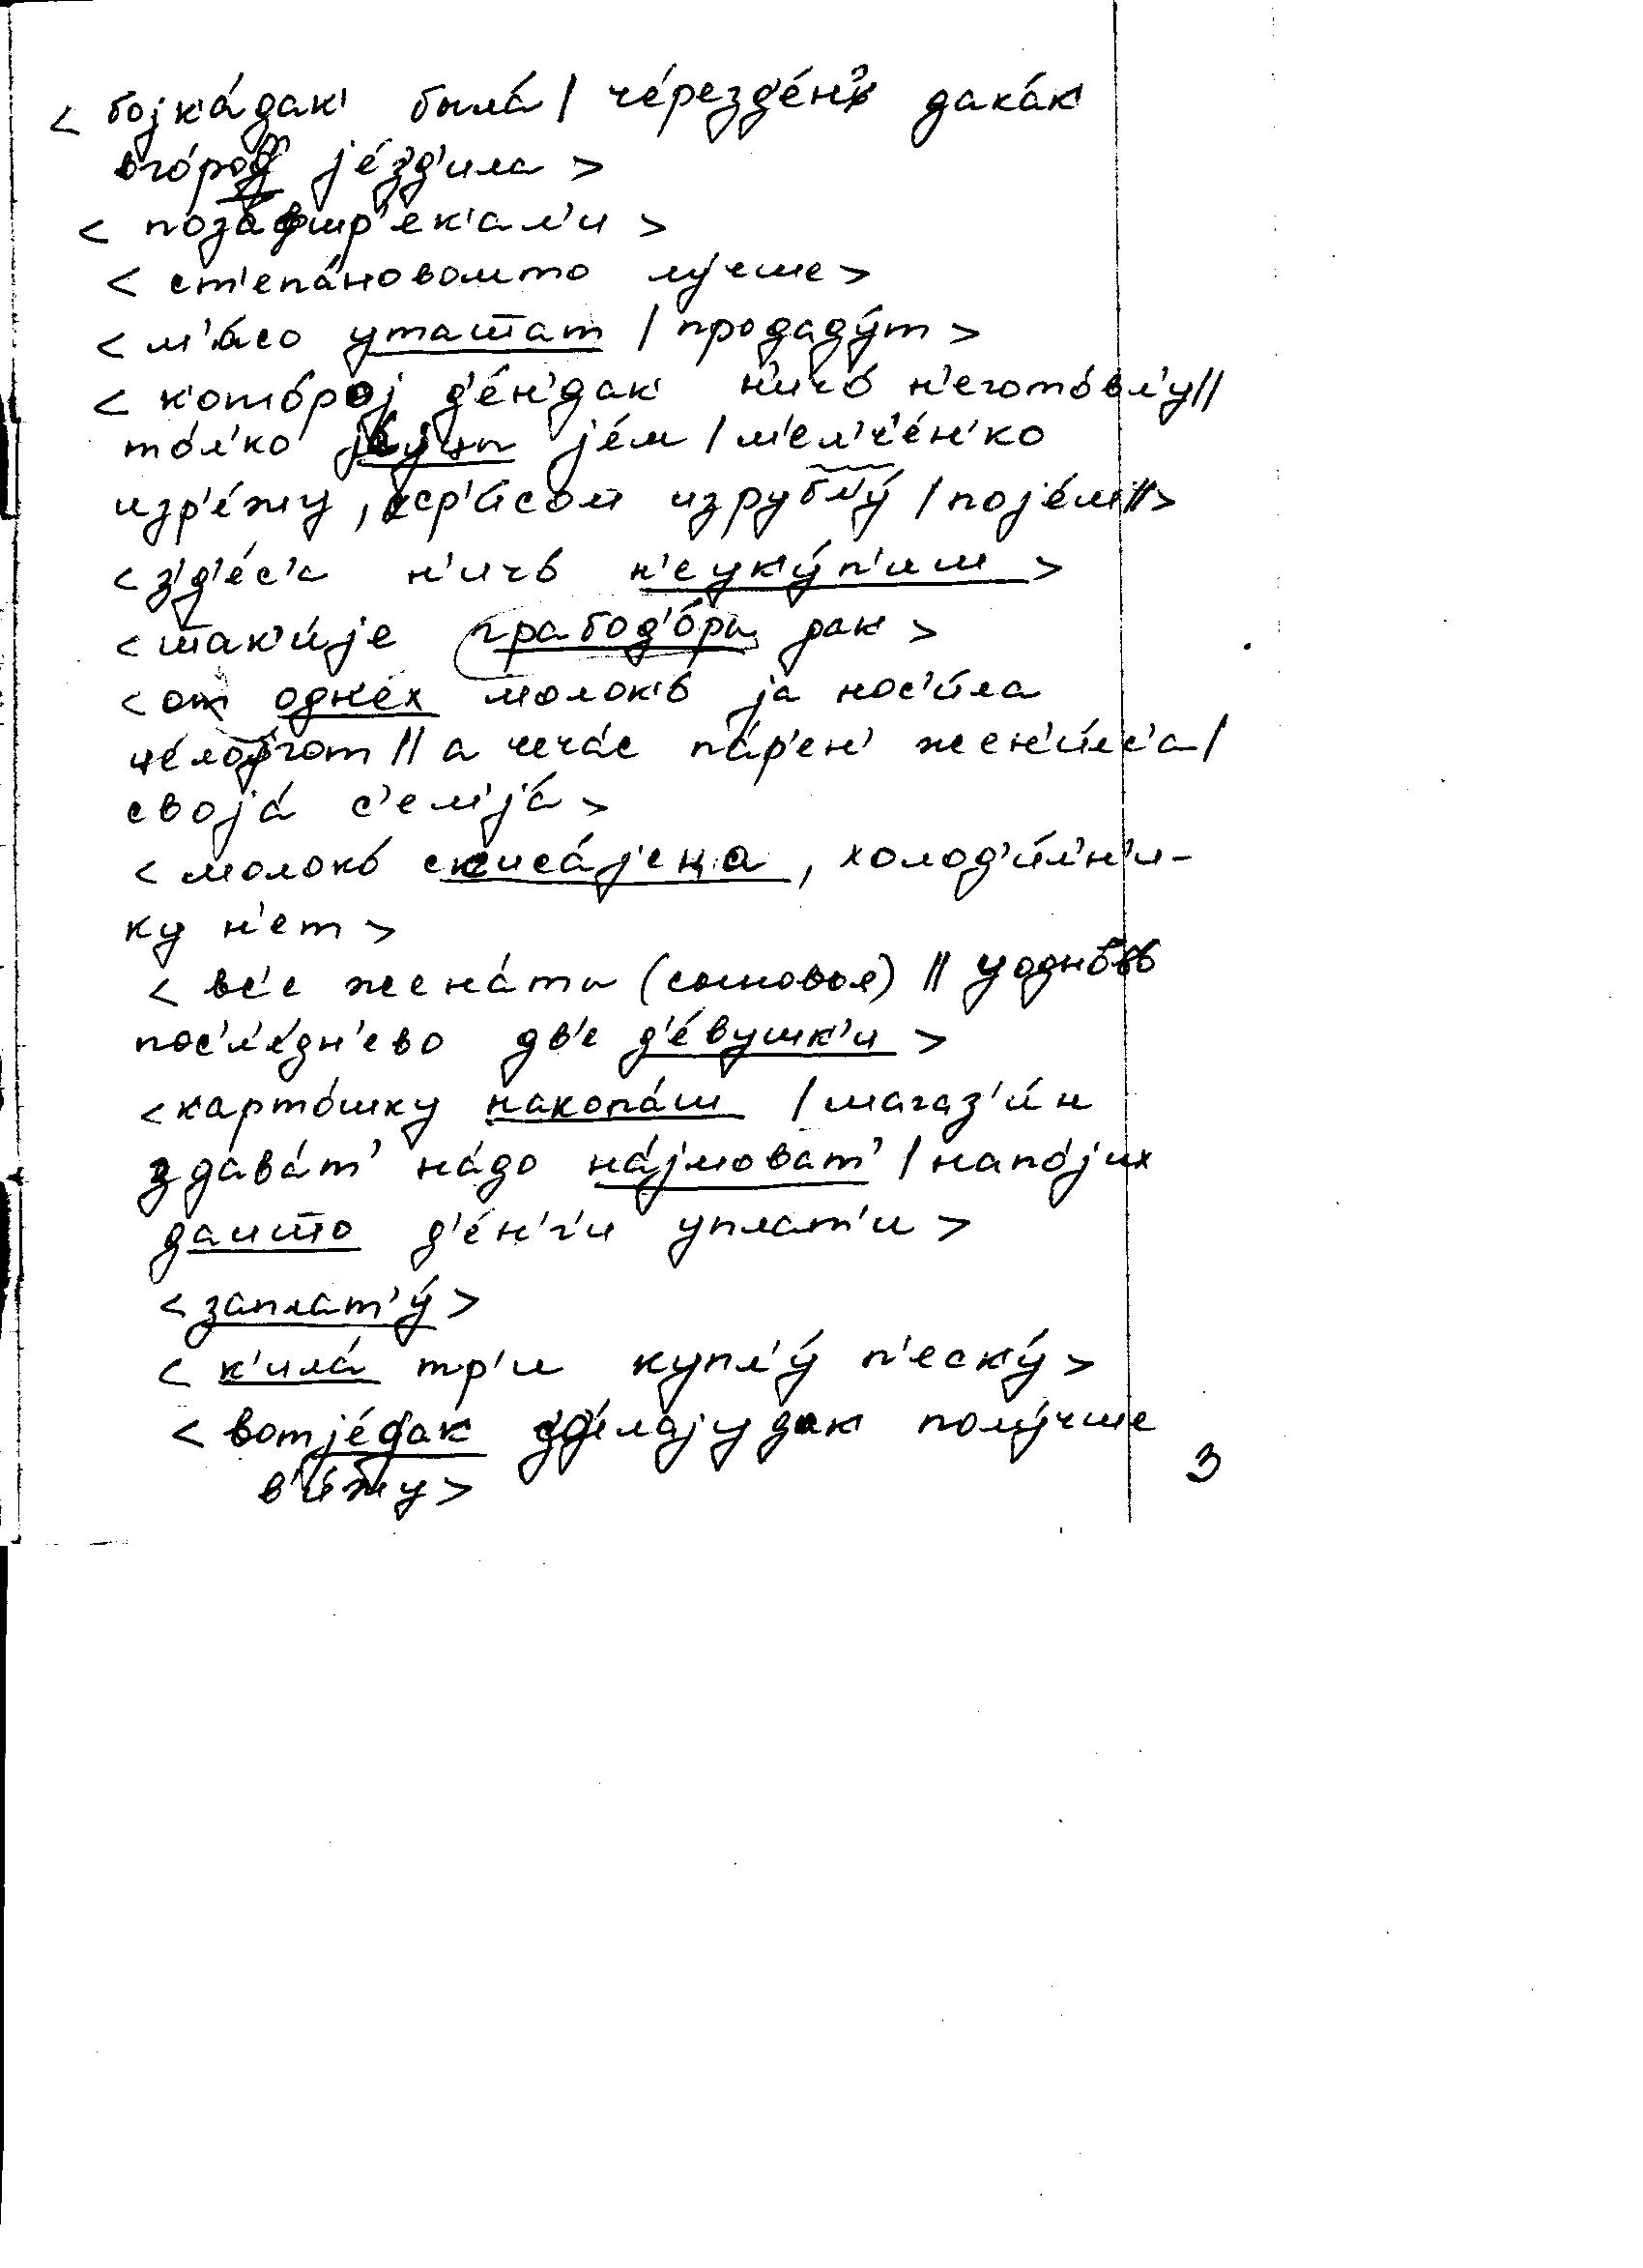 < бојка́дак была́ / че́резд'е́н' дака́к
вго́род је́зд'ила >
< поза́ р'ек'ам'и >
< ст'епа́новомто лу́чше >
< м'а́со уташшат / продаду́т >
< кото́рој д'е́н'дак н'ичо́ н'егото́вл'у //
то́л'ко је́м / м'ел'ч'е́н'ко
изр'е́жу, ср'и́сом изрубл'у́ / појем // >
< з'д'е́с'а н'ичо́ н'еуку́п'иш >
< так'и́је грабод'о́ры дак >
< от одне́х молоко́ ја нос'и́ла
це́лојгот // а чеча́с па́р'ен' жен'и́лс'а /
своја́ с'ем'ја́ >
< молоко́ скиса́јеца, холод'и́л'н'и-
ку н'ет >
< вс'е жена́ты (сыновья) // уодно́во
посл'е́дн'ево дв'е д'е́вушк'и >
< карто́шку накопа́ш / магаз'и́н
здава́т' на́до на́јмоват' / напо́јих
даишшо д'е́н'г'и уплат'и >
< заплат'у́ >
< к'ила́ тр'и купл'у́ п'еску́ >
< вотје́дак зд'е́лају дак полу́чше
в'и́жу >
3